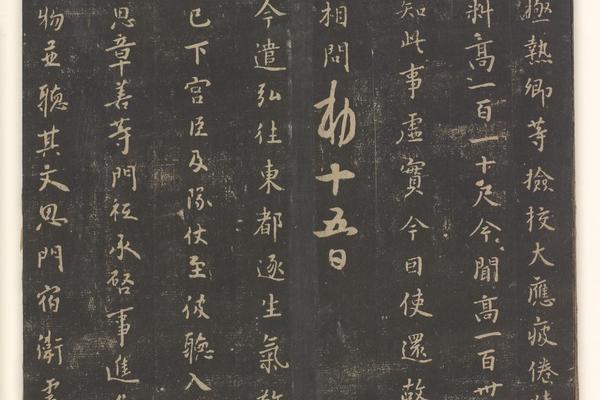 熱卿等撿挍大應疲倦
料高一百一十尺今聞高一百卅
知此事虛實今因使還
相問敕十五日
今遣弘往東都逐生氣
已下宮臣及隊仗至彼聽入
思章善等門祗承啓事進
物並聽其文思門宿衛